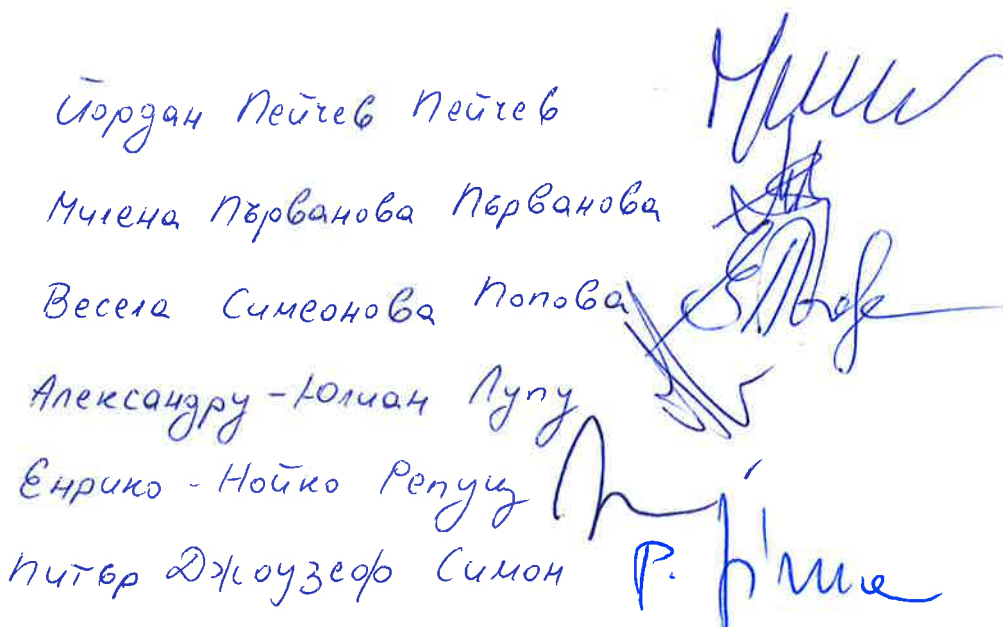 Йордан Пейчев Пейчев
Милена Първанова Първанова
Весела Симеонова Попова
Александру-Юлиан Лупу
Енрико-Нойко Репуц
Питър Джоузеф Симон P.